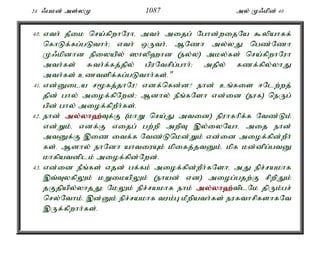 24 ஃபமன் அள்லமு 1087 அல் முஃமின் 40
40. எவர் தீமை செய்கிறாரோ, அவர் அதைப் போன்றதையே கூலியாகக்
கொடுக்கப்படுவார்; எவர் ஒருவர், ஆணோ அல்லது பெண்ணோ
முஃமினான நிலையில் ஸாலிஹான (நல்ல) அமல்கள் செய்கிறாரோ
அவர்கள் சுவர்க்கத்தில் பிரவேசிப்பார்; அதில் கணக்கில்லாது
அவர்கள் உணவளிக்கப்படுவார்கள்."
41. என்னுடைய சமூகத்தாரே! எனக்கென்ன? நான் உங்களை ஈடேற்றத்
தின் பால் அழைக்கிறேன்; ஆனால் நீங்களோ என்னை (நரக) நெருப்
பின் பால் அழைக்கிறீர்கள்.
42. நான் அல்லாஹ்வுக்கு (மாறு செய்து அவனை) நிராகரிக்க வேண்டும்
என்றும், எனக்கு எதைப் பற்றி அறிவு இல்லையோ, அதை நான்
அவனுக்கு இணை வைக்க வேண்டுமென்றும் என்னை அழைக்கின்றீர்
கள். ஆனால் நானோ யாவரையும் மிகைத்தவனும், மிக மன்னிப்பவனு
மாகியவனிடம் அழைக்கின்றேன்.
43. என்னை நீங்கள் எதன் பக்கம் அழைக்கின்றீர்களோ, அது நிச்சயமாக
இவ்வுலகிலும் மறுமையிலும் (நாயன் என) அழைப்பதற்கு சிறிதும்
தகுதியில்லாதது; மேலும் நிச்சயமாக நாம் அல்லாஹ்விடமே திரும்பச்
செல்வோம். இன்னும் நிச்சயமாக வரம்பு மீறியவர்கள் நரகவாசிகளாகவே
இருக்கிறார்கள்.